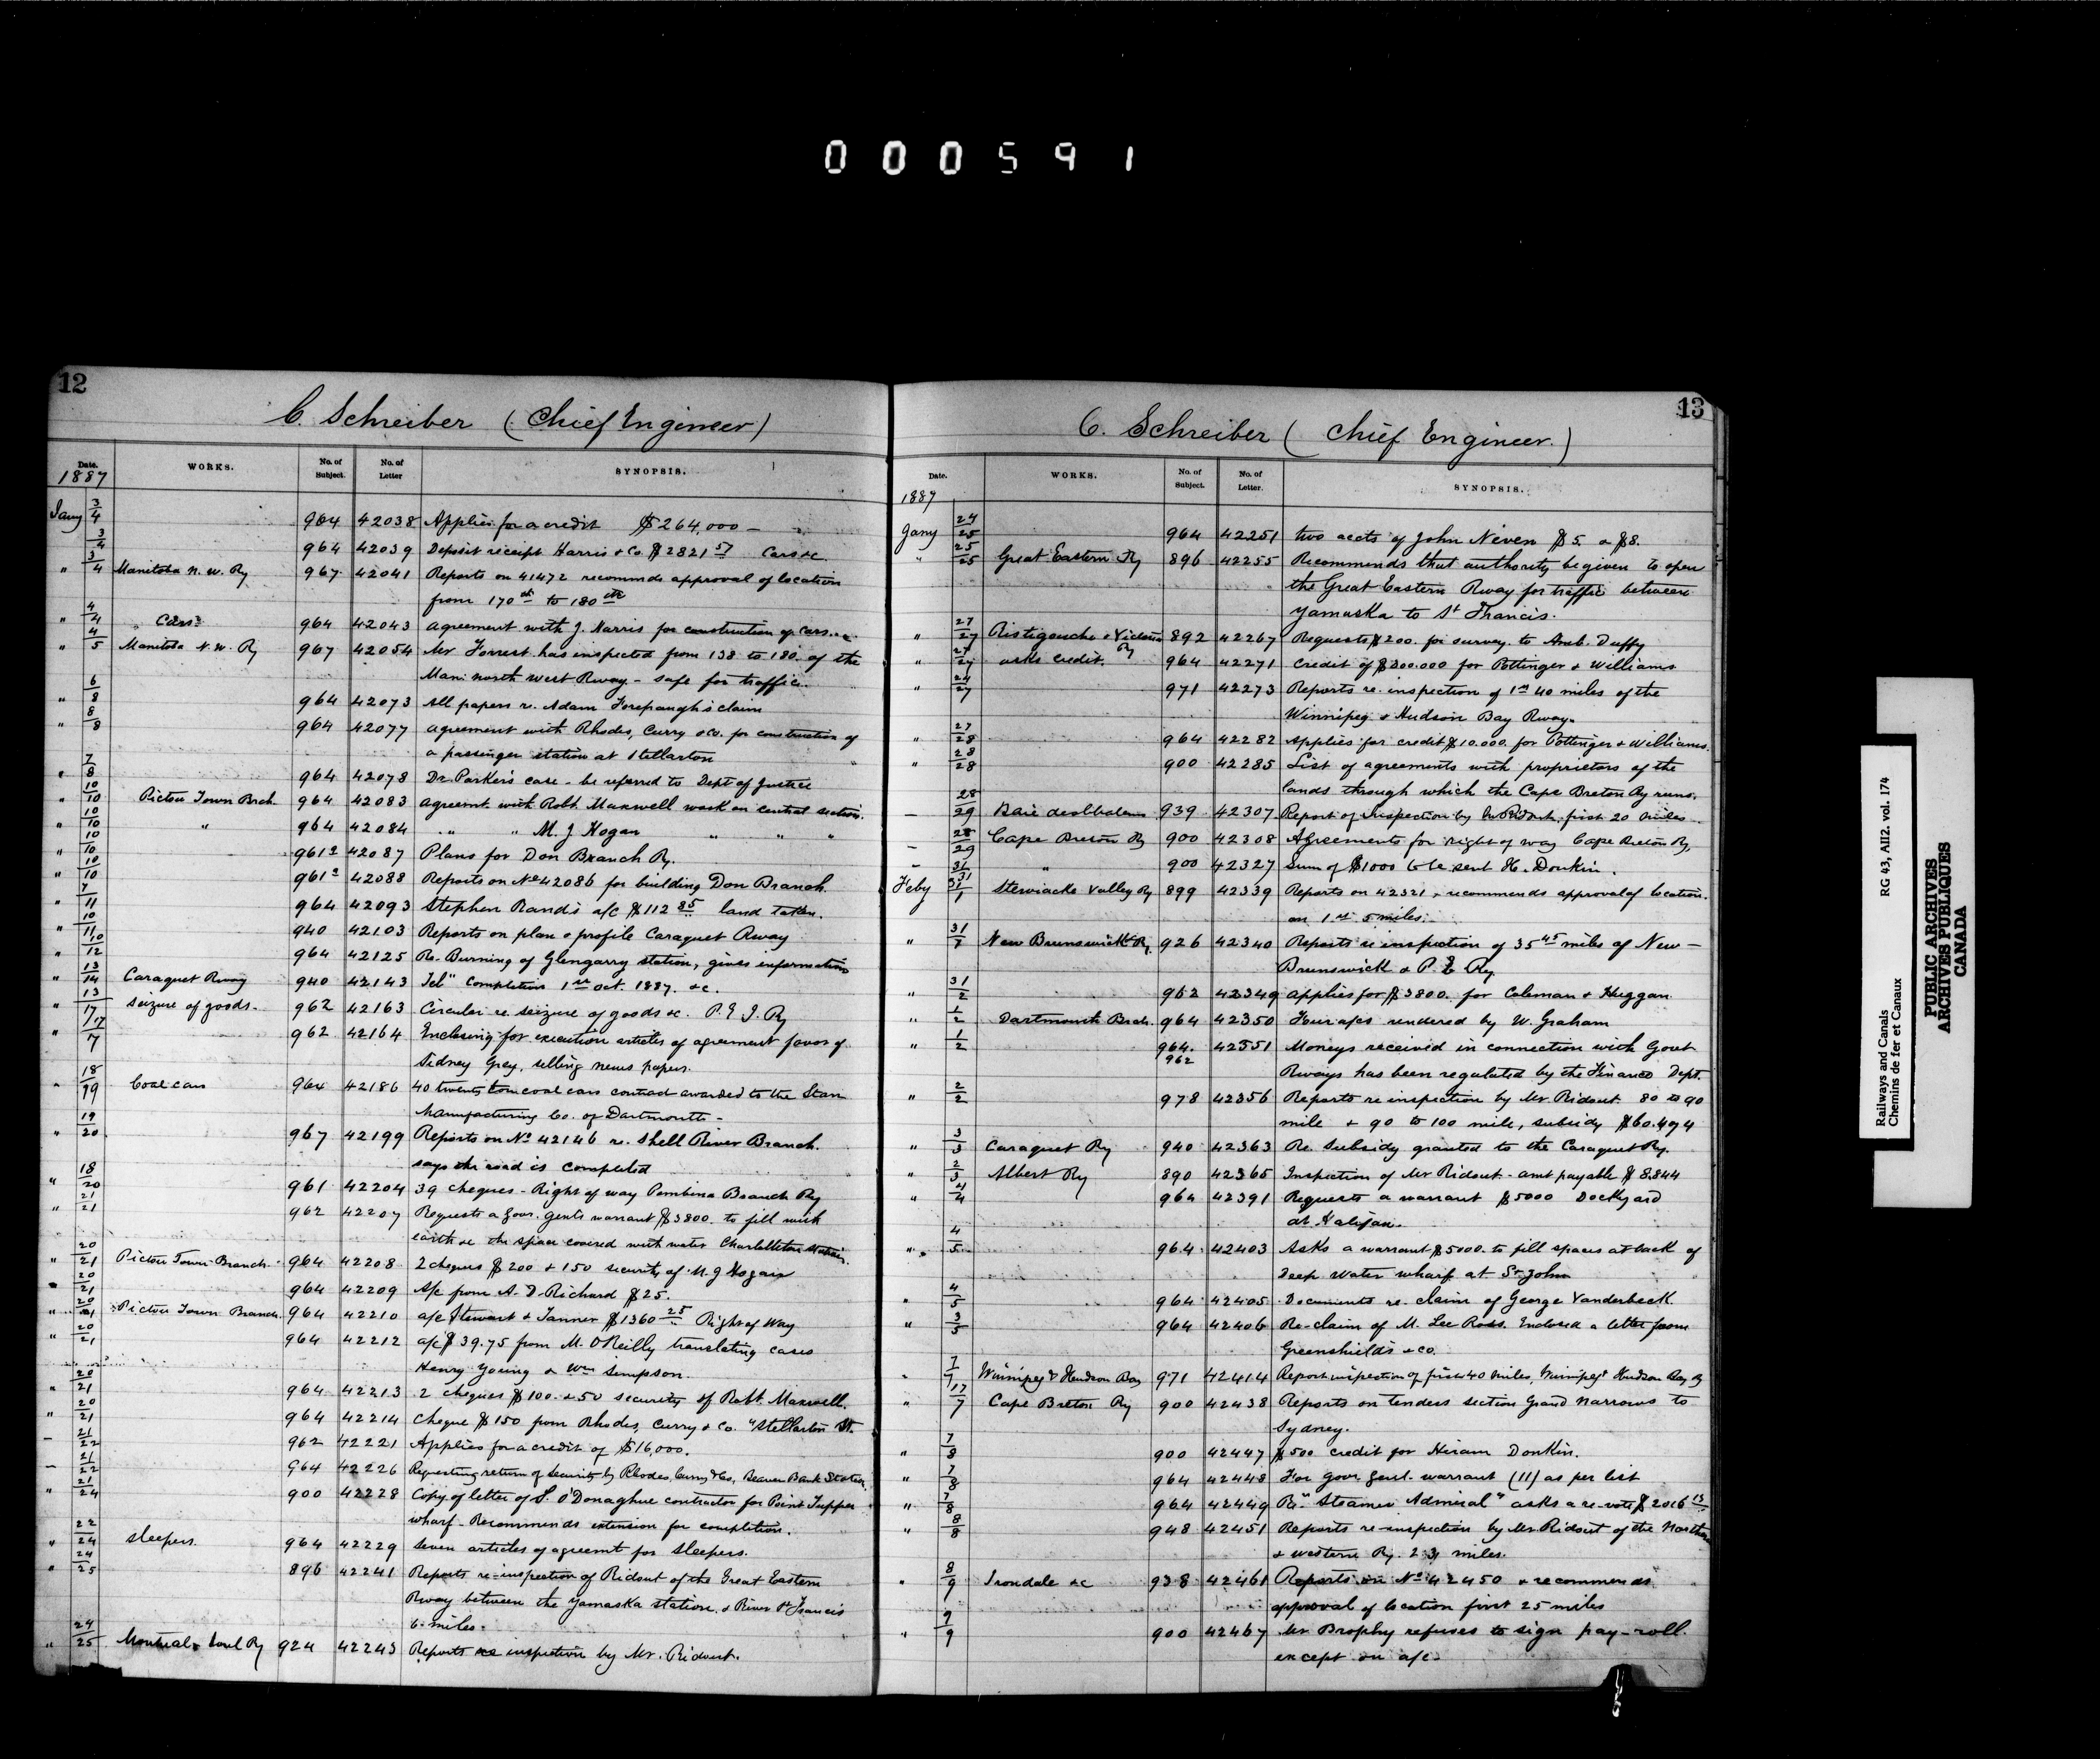 000591
12
C. Schreiber (Chief Engineer)
Date. WORKS. No. of Subject. No. of Letter SYNOPSIS.
1887
Jany 3/4 964 42038 Applies for a credit $264,000 —
3/4 964 42039 Deposit receipt Harris & Co. $2821 57 Cars &c
" 3/4 Manitoba N. W. Ry 967 42041 Reports on 41472 recommds approval of location
from 170th to 180th
" 4/4 " Cars 964 42043 agreement with J. Harris for construction of cars
" 4/5 Manitoba N. W. Ry 967 42054 Mr Forrest has inspected from 138 to 180 of the
Mani north west Rway - safe for traffic.
" 6/8 964 42073 All papers re. Adam Forepaugh's claim
" 8/8 964 42077 agreement with Rhodes, Curry & Co. for construction of
a passenger station at Stellarton
" 7/8 964 42078 Dr. Parker's case - be referred to Dept of Justice
" 10/10 Pictou Town Brch 964 42083 agreemt with Robt. Maxwell work on central section.
" 10/10 " 964 42084 " " M. J Hogan " " "
" 10/10 961½ 42087 Plans for Don Branch Ry.
" 10/10 961½ 42088 Reports on No 42086 for building Don Branch.
" 7/11 964 42093 Stephen Rand's a/c $112 85 land taken.
" 10/11 940 42103 Reports on plan & profile Caraquet Rway
" 10/12 964 42125 Re. Burning of Glengarry station, gives information
" 13/14 Caraquet Rway 940 42143 Tel" Completion 1st Oct. 1887. &c.
" 13/17 seizure of goods - 962 42163 Circular re. seizure of goods &c. P. E. I. Ry
" 17/17 962 42164 Enclosing for execution articles of agreement favor of
Sidney Grey, selling news papers.
" 18/19 Coal cars 964 42186 40 twenty ton coal cars contract awarded to the Starr
Manufacturing Co. of Dartmouth -
" 19/20 967 42199 Reports on No 42146 re. Shell River Branch.
says the road is completed
" 18/20 961 42204 39 cheques - Right of way Pembina Branch Ry
" 21/21 962 42207 Requests a Gov. Genl's warrant $3800. to fill with
earth &c the space covered with water Charlottetown
" 20/21 Pictou Town Branch 964 42208 2 cheques $200 & 150 security of M. J Hogan
20/21 964 42209 A/c from A. D. Richard $25.
" 20/21 Pictou Town Branch 964 42210 a/c Stewart & Tanner $1360 25 Right of Way
" 20/21 964 42212 a/c $39.75 from M. O'Reilly translating cases
Henry Young & Wm Simpson.
" 20/21 964 42213 2 cheques $100. & 50 security of Robt. Maxwell.
" 20/21 964 42214 cheque $150 from Rhodes, Curry & Co. "Stellarton St.
- 21/22 962 42221 Applies for a credit of $16,000.
- 21/22 964 42226 Requesting return of security by Rhodes, Curry & Co, Beaver Bank Station
" 21/24 900 42228 Copy of letter of S. O'Donaghue contractor for Point Tupper
wharf - Recommends extension for completion.
" 22/24 sleepers. 964 42229 Seven articles of agreemt for sleepers.
" 24/25 896 42241 Reports re-inspection of Ridout of the Great Eastern
Rway between the Yamaska station & River St Francis
6 miles.
" 24/25 Montreal & Sorel Ry 924 42243 Reports re inspection by Mr. Ridout.
13
C. Schreiber (Chief Engineer.)
Date. WORKS. No. of Subject. No. of Letter. SYNOPSIS.
1887
Jany 24/25 964 42251 two accts of John Neven $5. & $8.
" 25/25 Great Eastern Ry 896 42255 Recommends that authority be given to open
the Great Eastern Rway for traffic between
Yamaska to St Francis.
" 27/27 Ristigouche & Victoria Ry 892 42267 Requests $200. for survey to Amb. Duffy
" 27/27 asks credit. 964 42271 Credit of $200.000 for Pottinger & Williams
" 24/27 971 42273 Reports re. inspection of 1st 40 miles of the
Winnipeg & Hudson Bay Rway.
" 27/28 964 42282 Applies for credit $10.000. for Pottinger & Williams.
" 28/28 900 42285 List of agreements with proprietors of the
lands through which the Cape Breton Ry runs.
— 28/29 Baie des Chaleurs 939 42307 Report of Inspection by Mr Ridout, first 20 miles
— 28/29 Cape Breton Ry 900 42308 Agreements for right of way Cape Breton Ry.
- 31/31 " 900 42327 Sum of $1000 to be sent H. Donkin.
Feby 31/1 Stewiacke Valley Ry 899 42339 Reports on 42321, recommends approval of location
on 1st 5 miles.
" 31/1 New Brunswick Ry. 926 42340 Reports re inspection of 35 45 miles of New —
Brunswick & P. E Ry
" 31/2 962 42349 applies for $3800. for Coleman & Huggan
" 1/2 Dartmouth Brch. 964 42350 Four a/cs rendered by W. Graham
" 1/2 964. 962 42351 Moneys received in connection with Govt
Rways has been regulated by the Finance Dept.
" 2/2 978 42356 Reports re inspection by Mr. Ridout 80 to 90
mile & 90 to 100 mile, subsidy $60.494
" 3/3 Caraquet Ry 940 42363 Re. Subsidy granted to the Caraquet Ry.
" 2/3 Albert Ry 890 42365 Inspection of Mr Ridout - amt payable $8.844
" 4/4 964 42391 Requests a warrant $5000 Dockyard
at Halifax.
" 4/5 964 42403 Asks a warrant $5000. to fill spaces at back of
Deep Water wharf at St John
" 4/5 964 42405 Documents re. claim of George Vanderbeck
" 3/5 964 42406 Re-claim of M. Lee Ross. Enclosed a letter from
Greenshields & co.
" 7/7 Winnipeg & Hudson Bay 971 42414 Report inspection of first 40 miles, Winnipeg & Hudson Bay Ry
" 17/7 Cape Breton Ry 900 42438 Reports on tenders section Grand Narrows to
Sydney.
" 7/8 900 42447 $500 credit for Hiram Donkin.
" 7/8 964 42448 For Govr Genl. warrant (11) as per list
" 7/8 964 42449 Re "Steamer Admiral" asks a re-vote $2016 13
" 8/8 948 42451 Reports re-inspection by Mr. Ridout of the Northern
& western Ry. 2 31 miles.
" 8/9 Irondale &c 938 42461 Reports on No 42450 & recommends
approval of location first 25 miles
" 9/9 900 42467 Mr Brophy refuses to sign pay-roll.
except on a/c -
Railways and Canals RG 43, AII2. vol. 174
Chemins de fer et Canaux
PUBLIC ARCHIVES
ARCHIVES PUBLIQUES
CANADA